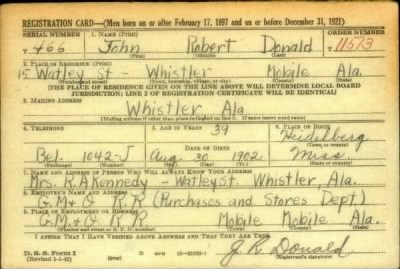 REGISTRATION CARD—(Men born on or after February 17, 1897 and on or before December 31, 1921)
SERIAL NUMBER 1. NAME (Print) ORDER NUMBER
T 466 John Robert Donald T 11513
(First) (Middle) (Last)
2. PLACE OF RESIDENCE (Print)
15 Watley St - Whistler Mobile Ala.
(Number and street) (Town, township, village, or city) (County) (State)
[THE PLACE OF RESIDENCE GIVEN ON THE LINE ABOVE WILL DETERMINE LOCAL BOARD
JURISDICTION; LINE 2 OF REGISTRATION CERTIFICATE WILL BE IDENTICAL]
3. MAILING ADDRESS
Whistler Ala
[Mailing address if other than place indicated on line 2. If same insert word same]
4. TELEPHONE 5. AGE IN YEARS 39 6. PLACE OF BIRTH
Heidelberg
DATE OF BIRTH (Town or county)
Bel. 1042-J Aug. 30 1902 Miss
(Exchange) (Number) (Mo.) (Day) (Yr.) (State or country)
7. NAME AND ADDRESS OF PERSON WHO WILL ALWAYS KNOW YOUR ADDRESS
Mrs. K.A Kennedy - Watley St. Whistler, Ala.
8. EMPLOYER'S NAME AND ADDRESS
G. M & O R.R (Purchases and Stores Dept)
9. PLACE OF EMPLOYMENT OR BUSINESS
G. M & O R R Mobile Mobile Ala.
(Number and street or R. F. D. number) (Town) (County) (State)
I AFFIRM THAT I HAVE VERIFIED ABOVE ANSWERS AND THAT THEY ARE TRUE.
D. S. S. Form 1
(Revised 1-1-42) (over) J. R Donald
(Registrant's signature)